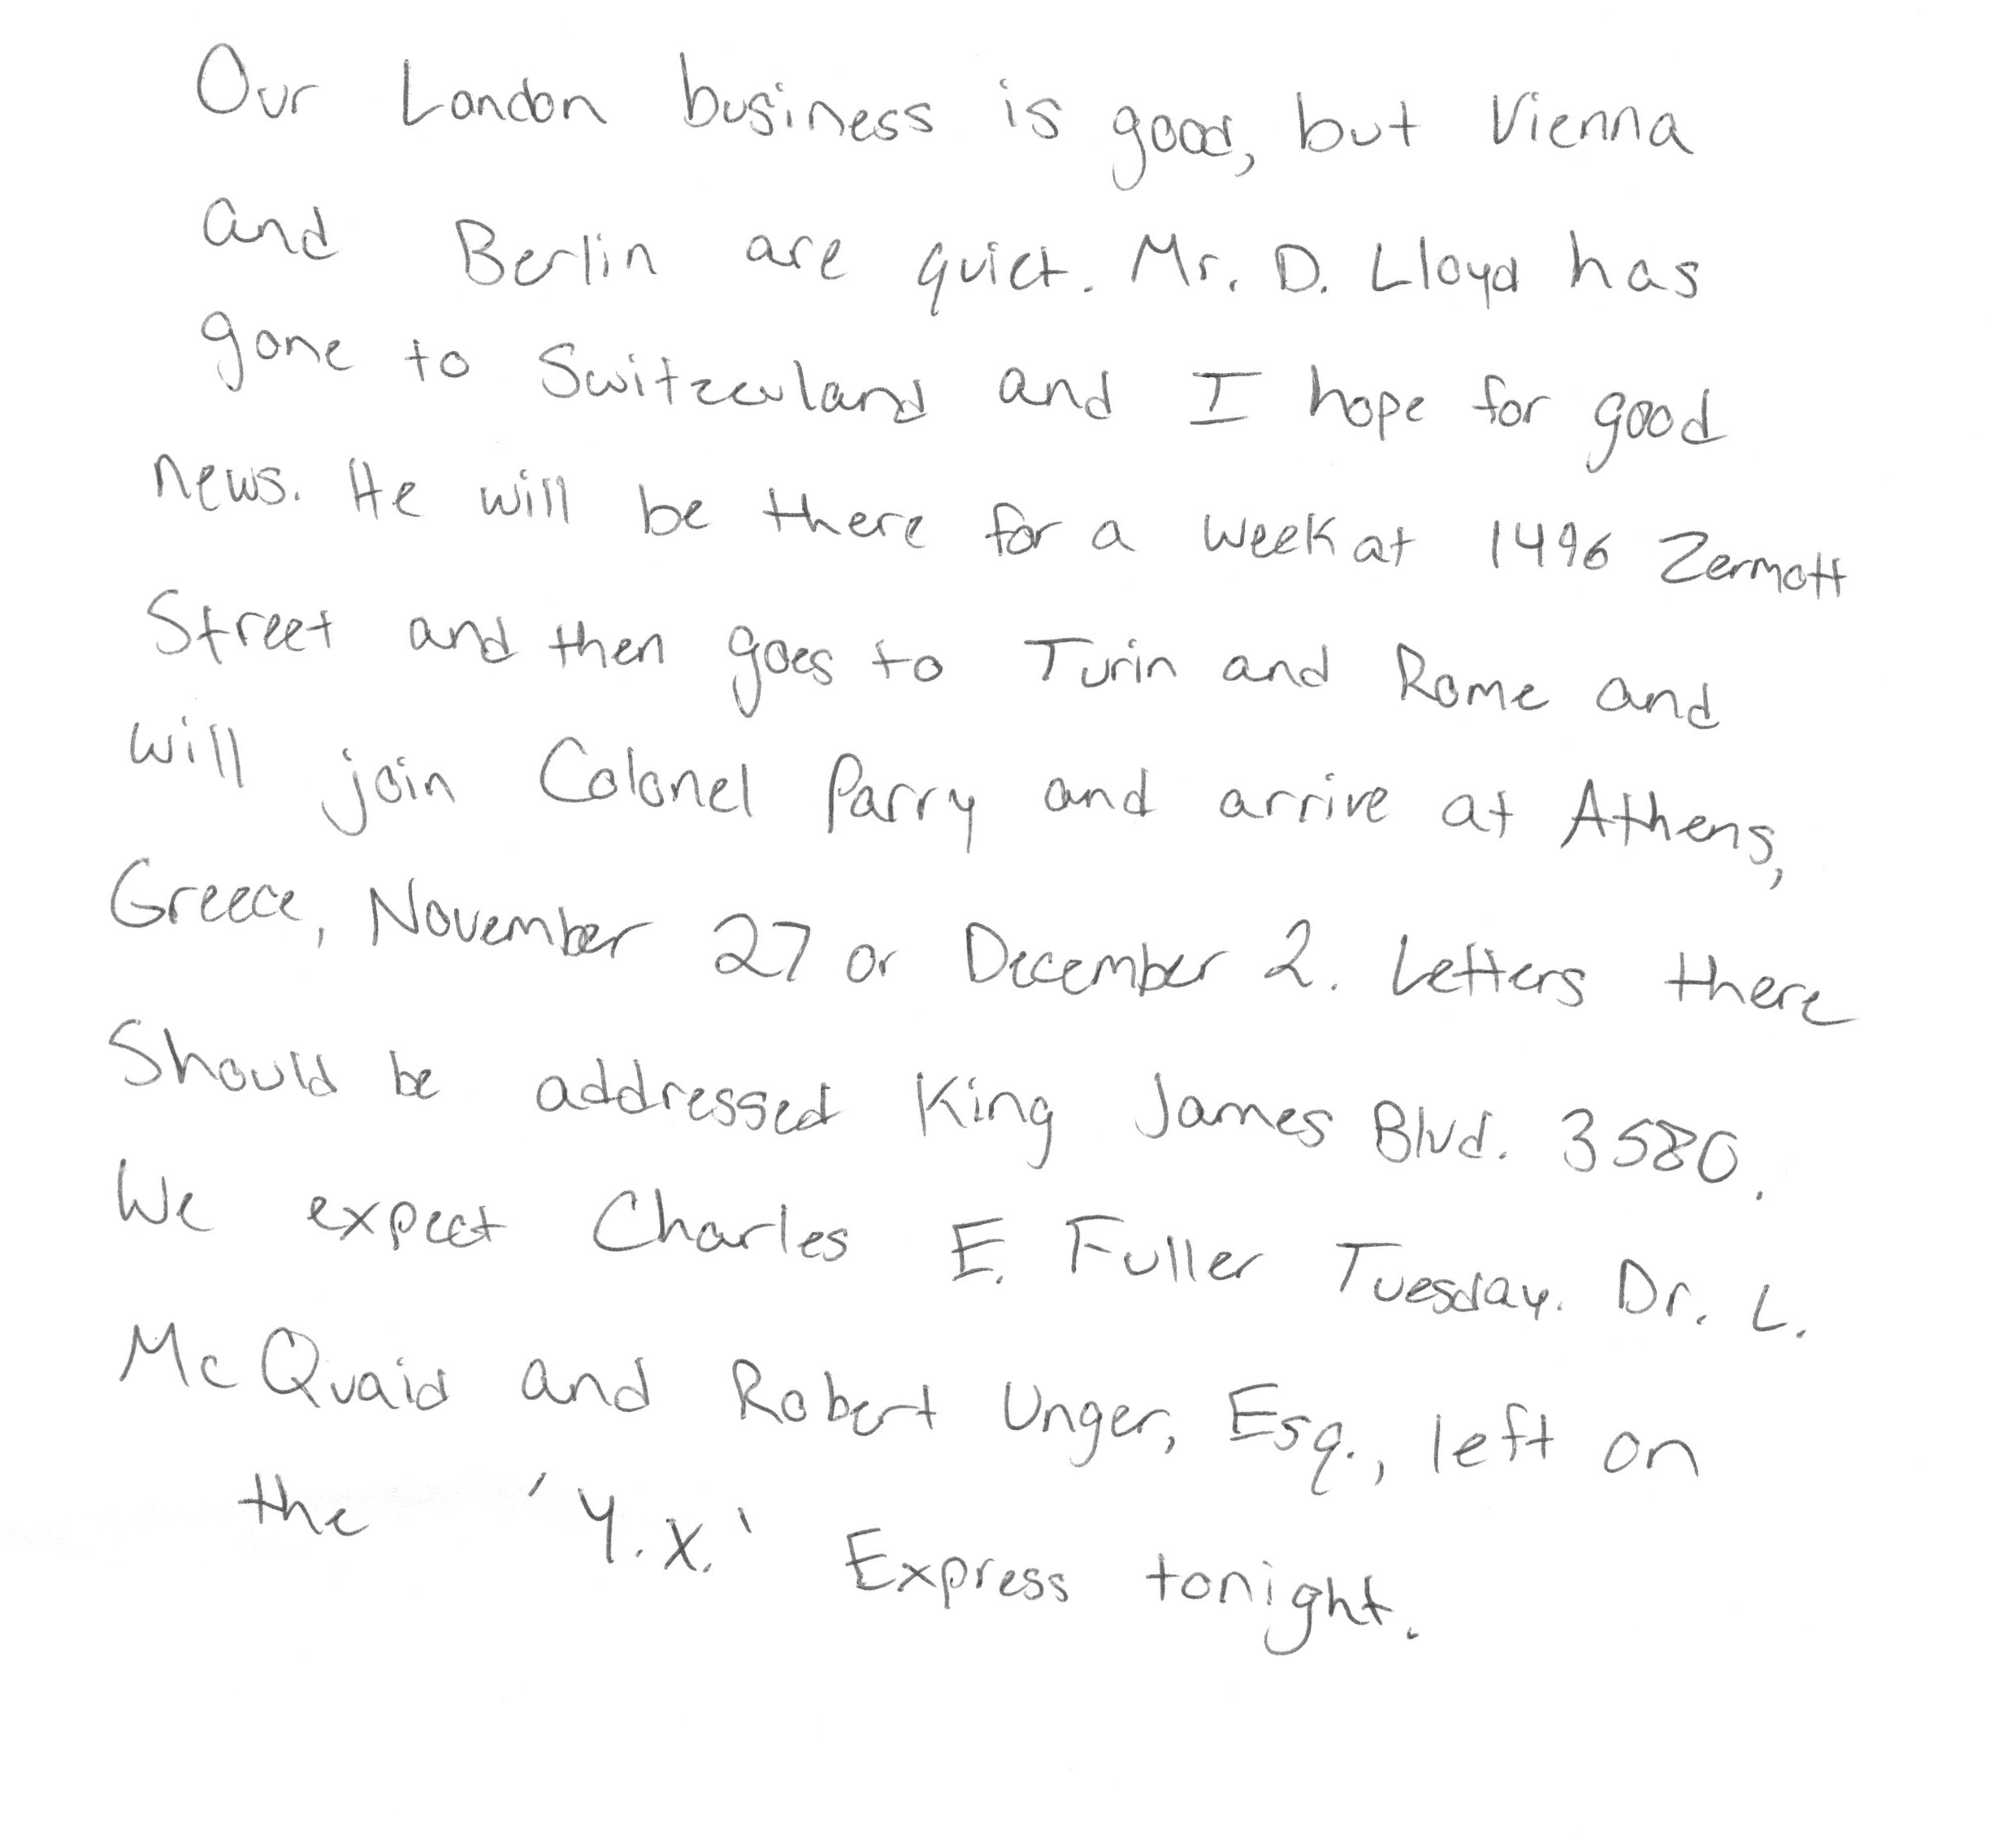 Our London business is good, but Vienna
and Berlin are quiet. Mr. D. Lloyd has
gone to Switzerland and I hope for good
news. He will be there for a week at 1496 Zermott
Street and then goes to Turin and Rome and
will join Colonel Parry and arrive at Athens,
Greece, November 27 or December 2. Letters there
Should be addressed King James Blvd. 3580.
We expect Charles E. Fuller Tuesday. Dr. L.
McQuaid and Robert Unger, Esq., left on
the 'Y.X.' Express tonight.